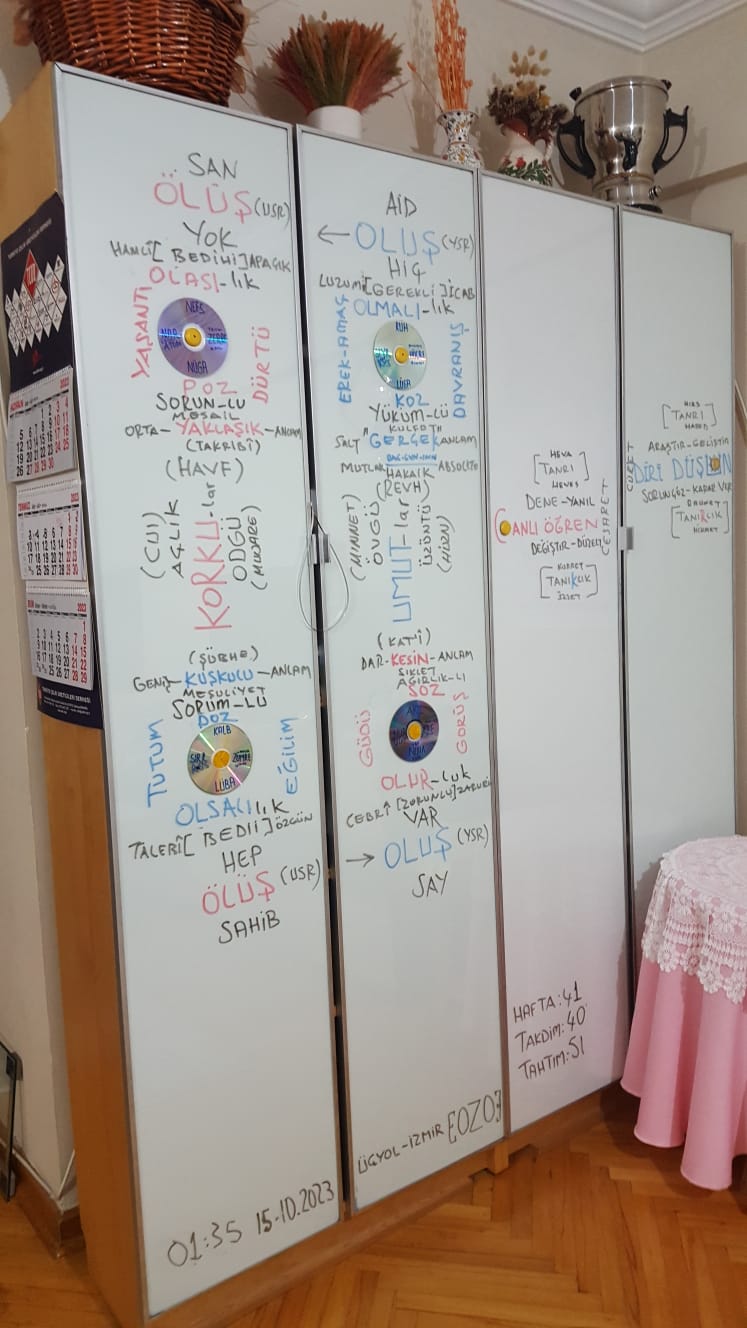 SAN
ÖLÜŞ (USR)
YOK
HAMLÎ [BEDİHİ] APAÇIK
OLASI-lık
YAŞANTI
DÜRTÜ
NEFS
NÜGA
POZ
SORUN-LU
MESAİL
ORTA-YAKLAŞIK-ANLAM
(TAKRİBİ)
(HAVF)
(CUI)
AÇLIK
KORKU-lar
ÖDGÜ
(ŞÜBHE)
GENİŞ-KUŞKULU-ANLAM
MESULİYET
SORUM-LU
DOZ
TUTUM
EĞİLİM
KALB
LÜBA
OLSALI lık
TALEBÎ [BEDİİ] ÖZGÜN
HEP
ÖLÜŞ (USR)
SAHİB
01:35 15-10.2023
AİD
← OLUŞ (YSR)
HİÇ
LUZUMÎ [GEREKLİ] İCAB
OLMALI-lık
EREK-AMAÇ
DAVRANIŞ
RUH
LÜGA
KOZ
YÜKÜM-LÜ
KÜLFET
SALT "GERÇEK ANLAM
MUTLAK HAKAİK ABSOLUTE
(REVH)
(MİNNET)
ÖVGÜ
UMUT-lar
ÜZÜNTÜ
(HÜZN)
(KAT'İ)
DAR-KESİN-ANLAM
SIKLET
AĞIRLIK-LI
SÖZ
GÜDÜ
GÖRÜŞ
OLUR-luk
CEBRÎ [ZORUNLU] ZARURİ
VAR
→ OLUŞ (YSR)
SAY
ÜÇYOL-İZMİR [EOZOE]
HEVA
[TANRI]
HEVES
DENE-YANIL
CANLI ÖĞREN
DEĞİŞTİR-DÜZELT
CESARET
KUDRET
[TANIKLIK]
İZZET
HAFTA:41
TAKDİM:40
TAHTIM:51
HIRS
[TANRI]
HASED
ARAŞTIR-GELİŞTİR
DİRİ DÜŞÜN
SORUNÇÖZ-KARAR VER
RAHMET
[TANIRLIK]
HİKMET
2023
2023
2023